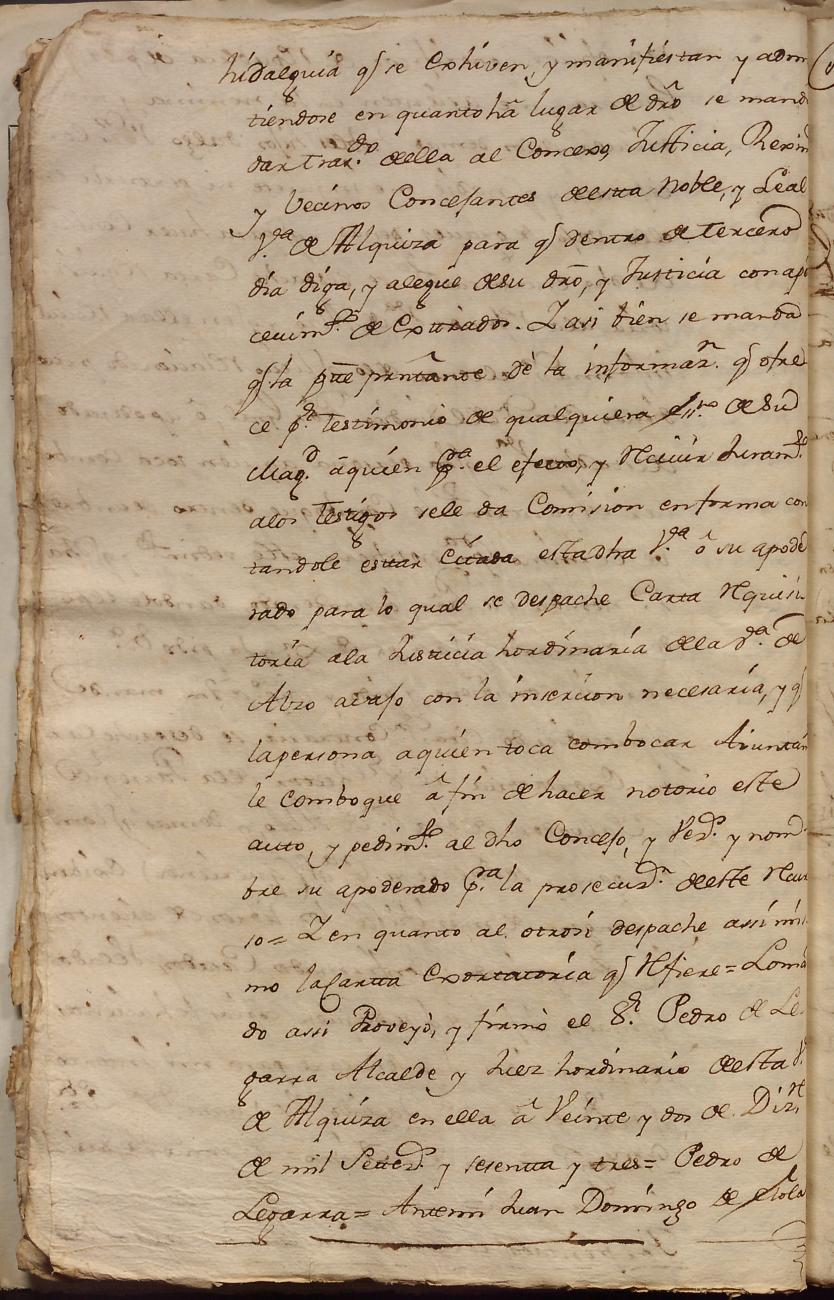 hidalguia q̃ se exhiven, y manifiestan y adm
tiendose en quanto hã lugar de dr̃o se mand
dar tras.do della al Concexo, Justicia, Rexim
y Vecinos Concejantes desta Noble, y Leal
V.a de Alquiza para q̃ dentro de tercero
dia diga, y alegue de su dr̃o, y Justicia con ap
cevim.to de Extrados. Y asi bien se manda
q̃ la pñte dè la informaz.n q̃ ofre
ce p.r testimonio de qualquiera ess.no de Su
Mag.d à quien p.a el efecto, y Recivir Juram.to
alos testigos sele da Comision en forma con
tandole estar Citada esta dha V.a ô su apode
rado para lo qual se despache Carta Requisi
toria ala Justicia hordinaria de la V.a de
Alzo avajo con la insercion necesaria, y q̃
la persona a quien toca combocar Aiuntam
le comboque â fin de hacer notorio este
auto, y pedim.to al dho Concejo, y Vez.s y nom
bre su apoderado p.a la prosecuz.n deste Recur
so= Y en quanto al otrosi despache assimis
mo la Carta Exortatoria q̃ Refiere= Lo ma
do assi Proveyò, y firmò el S.r Pedro de Le
garra Alcalde y Juez hordinario desta V.
de Alquiza en ella â Veinte y dos de Diz.re
de mil Setez.s y sesenta y tres= Pedro de
Legarra= Antemi Juan Domingo de